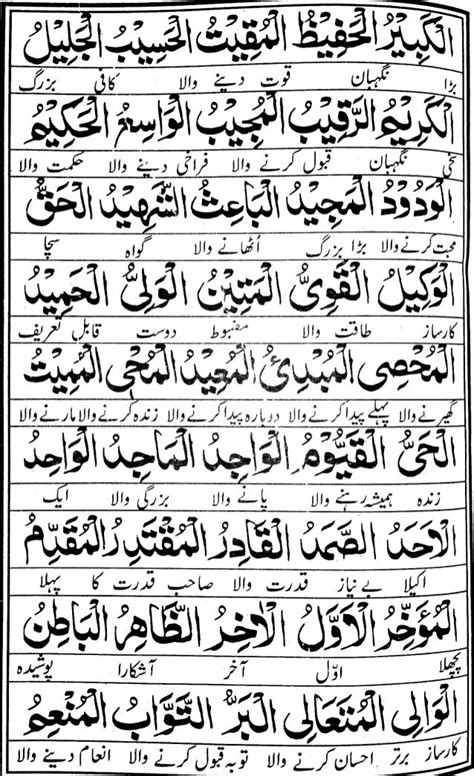 اَلْكَبِيْرُ الْحَفِيْظُ الْمُقِيْتُ الْحَسِيْبُ الْجَلِيْلُ
بڑا نگہبان قوت دینے والا کافی بزرگ
اَلْكَرِيْمُ الرَّقِيْبُ الْمُجِيْبُ الْوَاسِعُ الْحَكِيْمُ
سخی نگہبان قبول کرنے والا فراخی دینے والا حکمت والا
اَلْوَدُوْدُ الْمَجِيْدُ الْبَاعِثُ الشَّهِيْدُ الْحَقُّ
محبت کرنے والا بڑا بزرگ اُٹھانے والا گواہ سچا
اَلْوَكِيْلُ الْقَوِيُّ الْمَتِيْنُ الْوَلِيُّ الْحَمِيْدُ
کارساز طاقت والا مضبوط دوست قابل تعریف
اَلْمُحْصِى الْمُبْدِئُ الْمُعِيْدُ الْمُحْىِ الْمُمِيْتُ
گھیرنے والا پہلے پیدا کرنے والا دوبارہ پیدا کرنے والا زندہ کرنے والا مارنے والا
اَلْحَىُّ الْقَيُّوْمُ الْوَاجِدُ الْمَاجِدُ الْوَاحِدُ
زندہ ہمیشہ رہنے والا پانے والا بزرگی والا ایک
اَلْاَحَدُ الصَّمَدُ الْقَادِرُ الْمُقْتَدِرُ الْمُقَدِّمُ
اکیلا بے نیاز قدرت والا صاحب قدرت کا پہلا
اَلْمُؤَخِّرُ الْاَوَّلُ الْاٰخِرُ الظَّاهِرُ الْبَاطِنُ
پچھلا اوّل آخر آشکارا پوشیدہ
اَلْوَالِى الْمُتَعَالِى الْبَرُّ التَّوَّابُ الْمُنْعِمُ
کارساز برتر احسان کرنے والا توبہ قبول کرنے والا انعام دینے والا